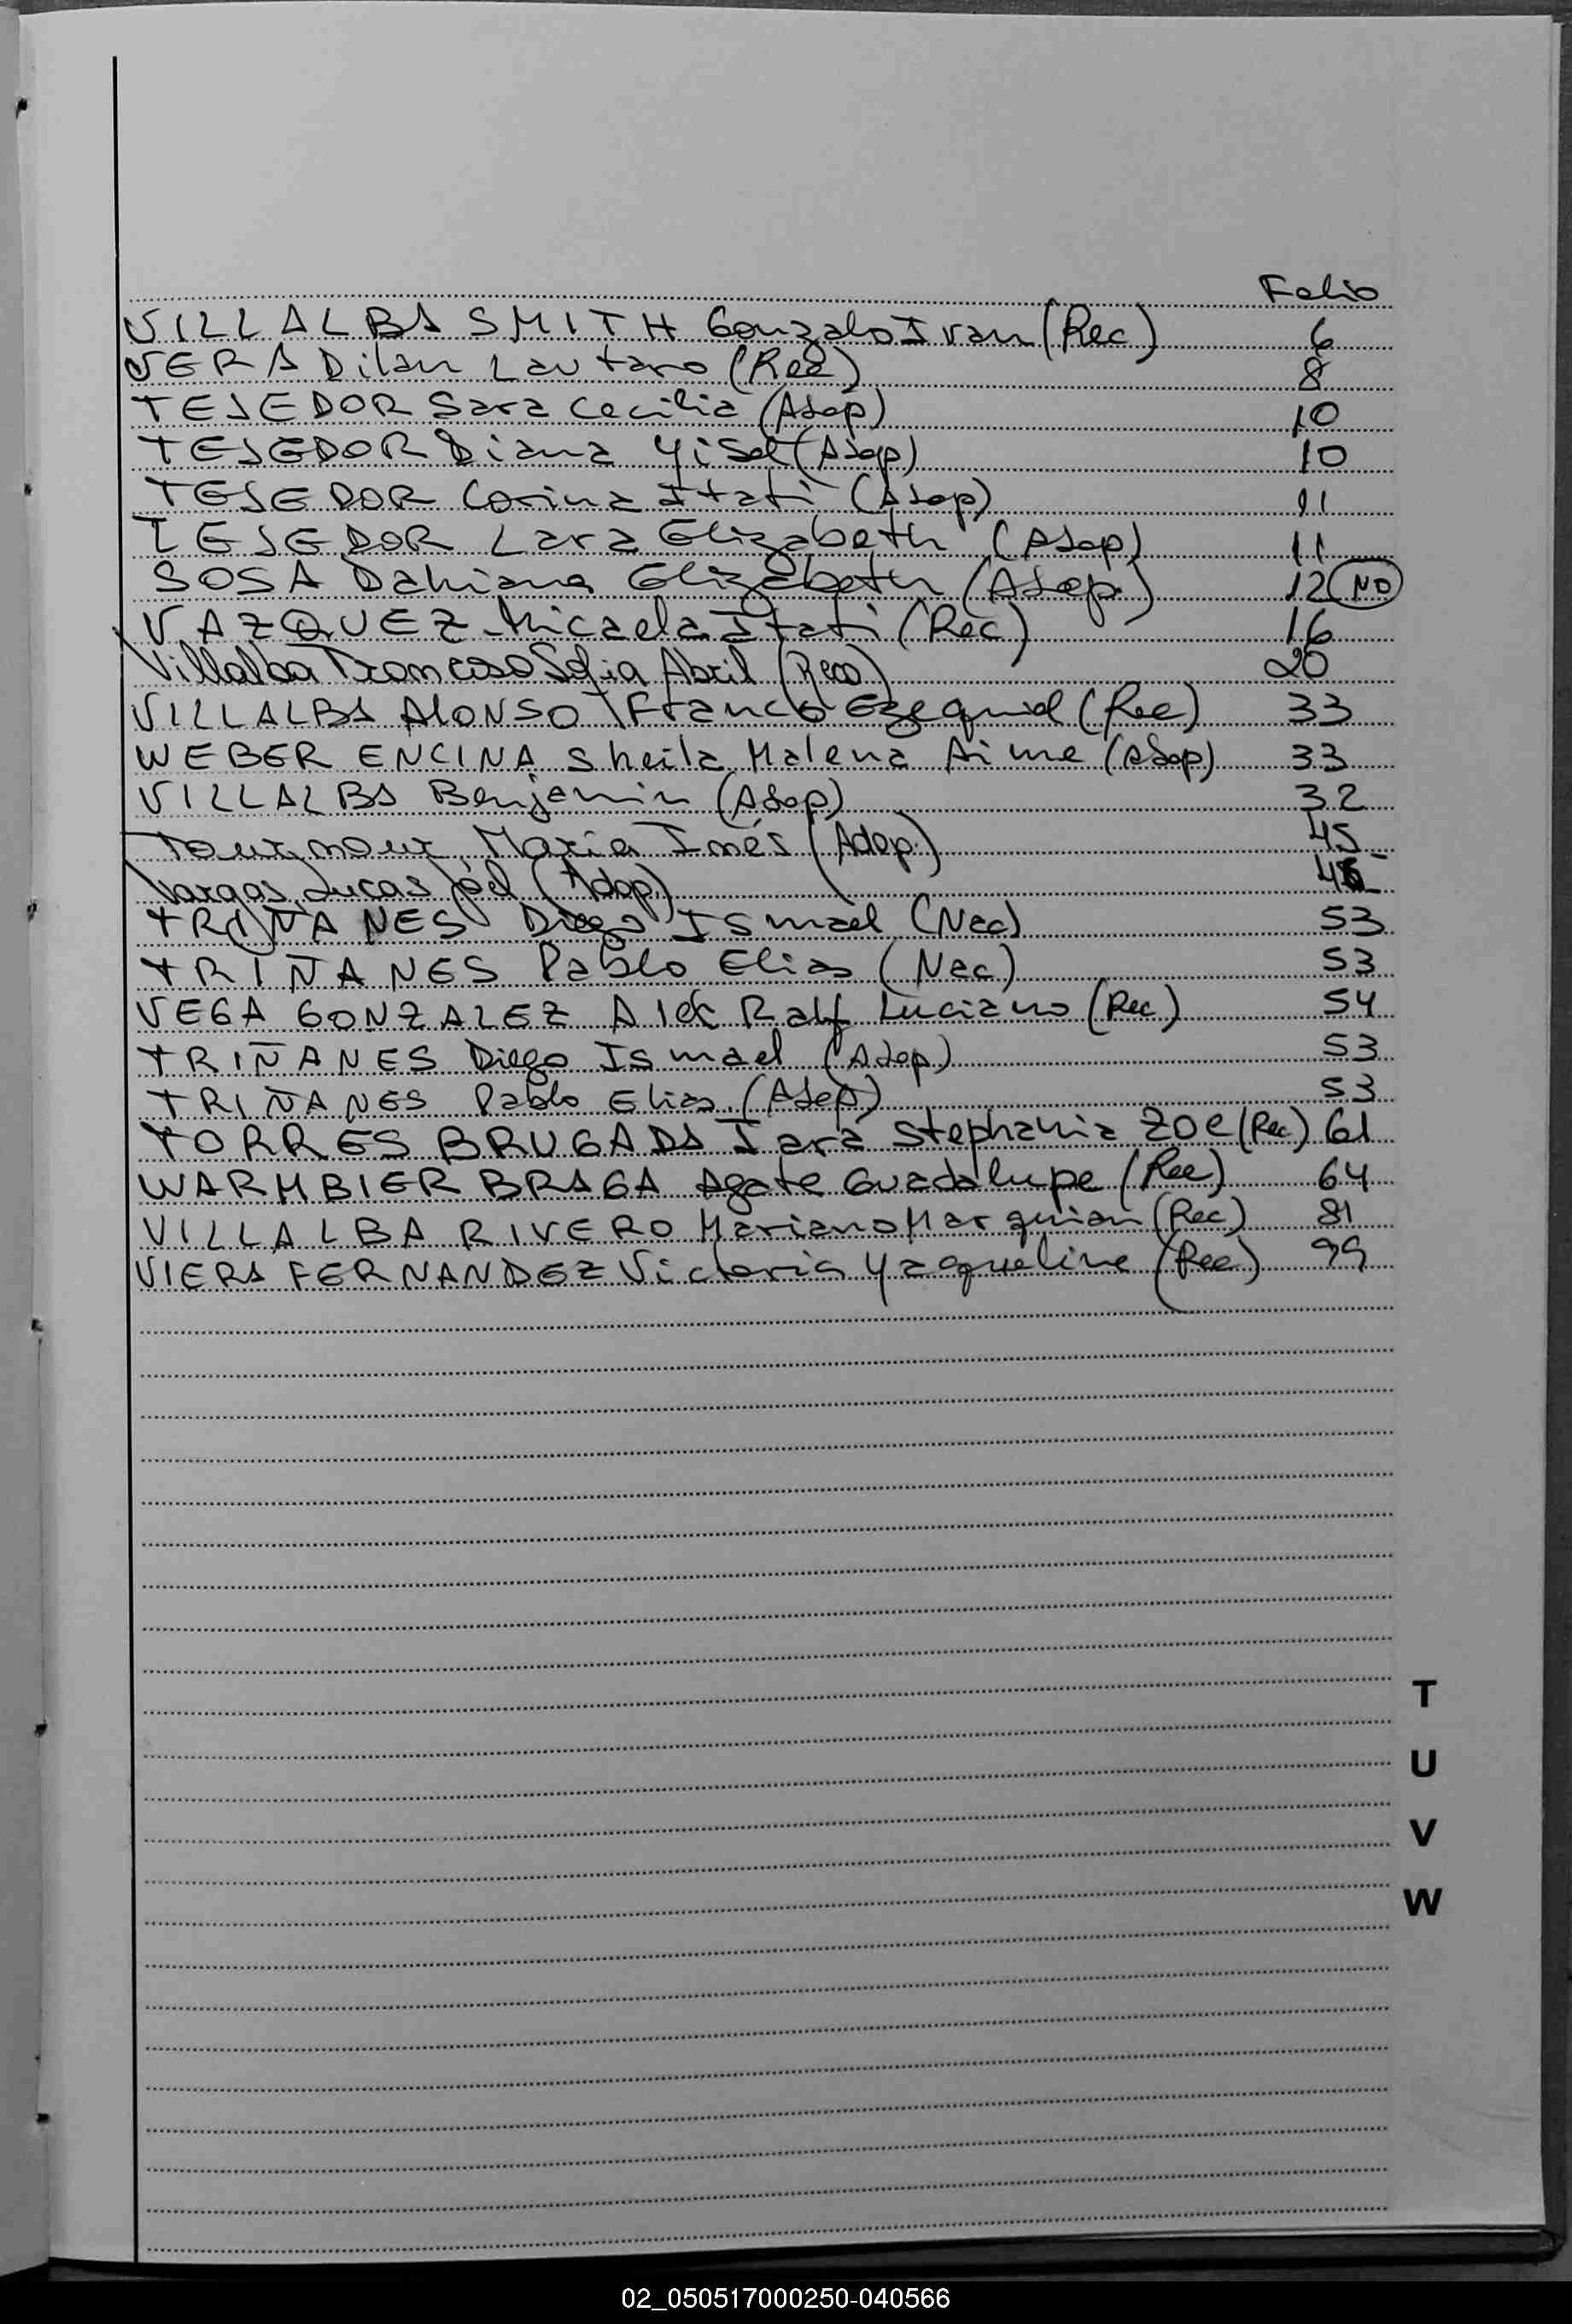 Folio
VILLALBA SMITH Gonzalo Ivan (Rec) 6
VERA Dilan Lautaro (Rec) 8
TEJEDOR Sara Cecilia (Adop) 10
TEJEDOR Diana Yisel (Adop) 10
TEJEDOR Corina Itati (Adop) 11
TEJEDOR Lara Elizabeth (Adop) 11
SOSA Dahiana Elizabeth (Adop) 12 NO
VAZQUEZ Micaela Itati (Rec) 16
Villalba Troncoso Sofia Abril (Reco) 20
VILLALBA ALONSO Franco Ezequiel (Rec) 33
WEBER ENCINA Sheila Malena Aime (Adop) 33
VILLALBA Benjamin (Adop) 32
Tournour, Maria Inés (Adop.) 45
Vargas, Lucas Joél (Adop.)
TRIÑANES Diego Ismael (Nac) 53
TRIÑANES Pablo Elias (Nac) 53
VEGA GONZALEZ Alex Ralf Luciano (Rec) 54
TRIÑANES Diego Ismael (Adop) 53
TRIÑANES Pablo Elias (Adop) 53
TORRES BRUGADA Iara Stephania Zoe (Rec) 61
WARMBIER BRAGA Agate Guadalupe (Rec) 64
VILLALBA RIVERO Mariano (Rec) 81
VIERA FERNANDEZ Victoria Yaqueline (Rec) 99
T
U
V
W
02_050517000250-040566